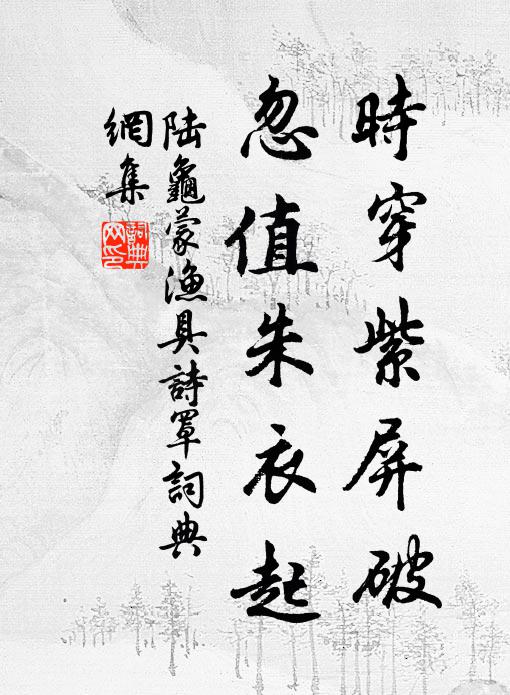 時穿紫屏破
忽值朱衣起
陆龜蒙漁具詩罩詞典
網集
詞典網印